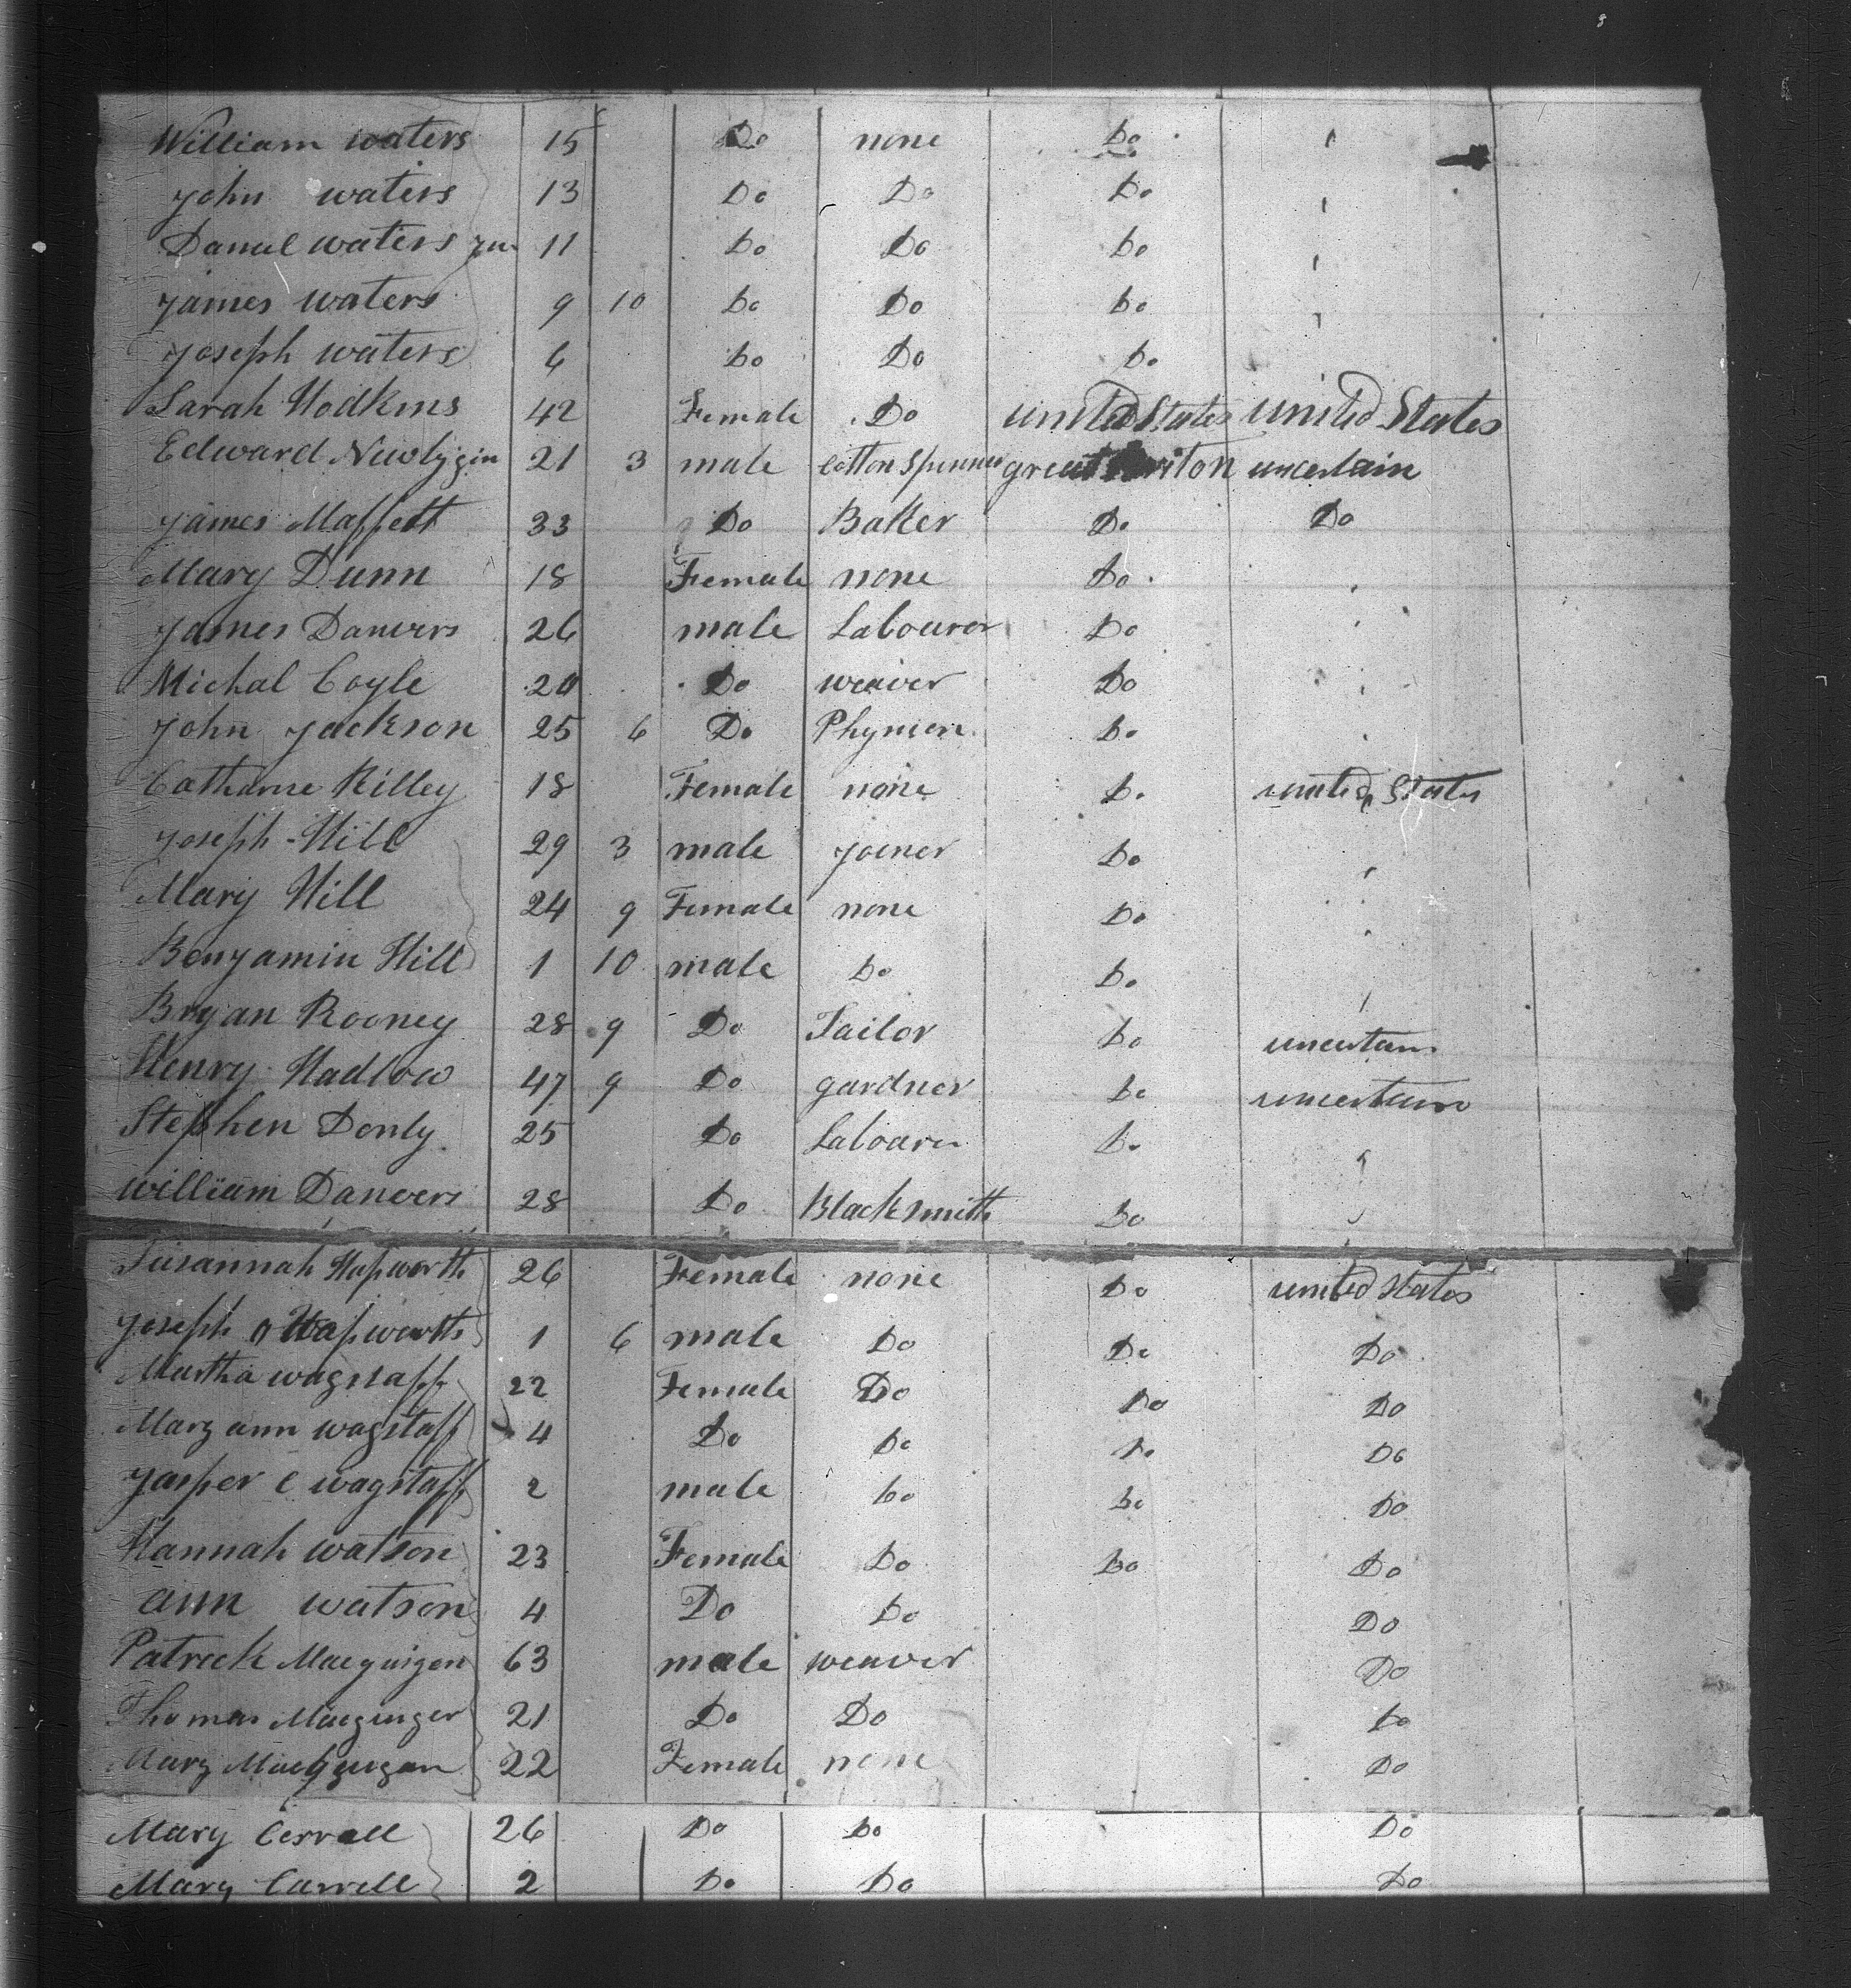 William waters 15 Do none Do
John waters 13 Do Do Do
Daniel waters Jun 11 Do Do Do
James waters 9 10 Do Do Do
Joseph waters 6 Do Do Do
Sarah Hodkins 42 Female Do united States united States
Edward Newbiggin 21 3 male Cotton Spinner great Briton uncertain
James Maffett 33 Do Baker Do Do
Mary Dunn 18 Female none Do
James Danvers 26 male Labourer Do
Michal Coyle 20 Do weaver Do
John Jackson 25 6 Do Do
Catharine Rilley 18 Female none Do united States
Joseph Hill 29 3 male Joiner Do
Mary Hill 24 9 Female none Do
Benjamin Hill 1 10 male Do Do
Bryan Rooney 28 9 Do Tailor Do uncertain
Henry Hadlow 47 9 Do gardner Do uncertain
Stephen Donly 25 Do Labourer Do
William Danvers 28 Do Blacksmith Do
Susannah Hapworth 26 Female none Do united States
Joseph Hapworth 1 6 male Do Do Do
Martha wagstaff 22 Female Do Do Do
Mary ann wagstaff 4 Do Do Do Do
Jasper C wagstaff 2 male Do Do Do
Hannah watson 23 Female Do Do Do
ann watson 4 Do Do Do
Patrick Macguigen 63 male weaver Do
Thomas 21 Do Do Do
Mary 22 Female none Do
Mary Cerrell 26 Do Do Do
Mary Carrell 2 Do Do Do